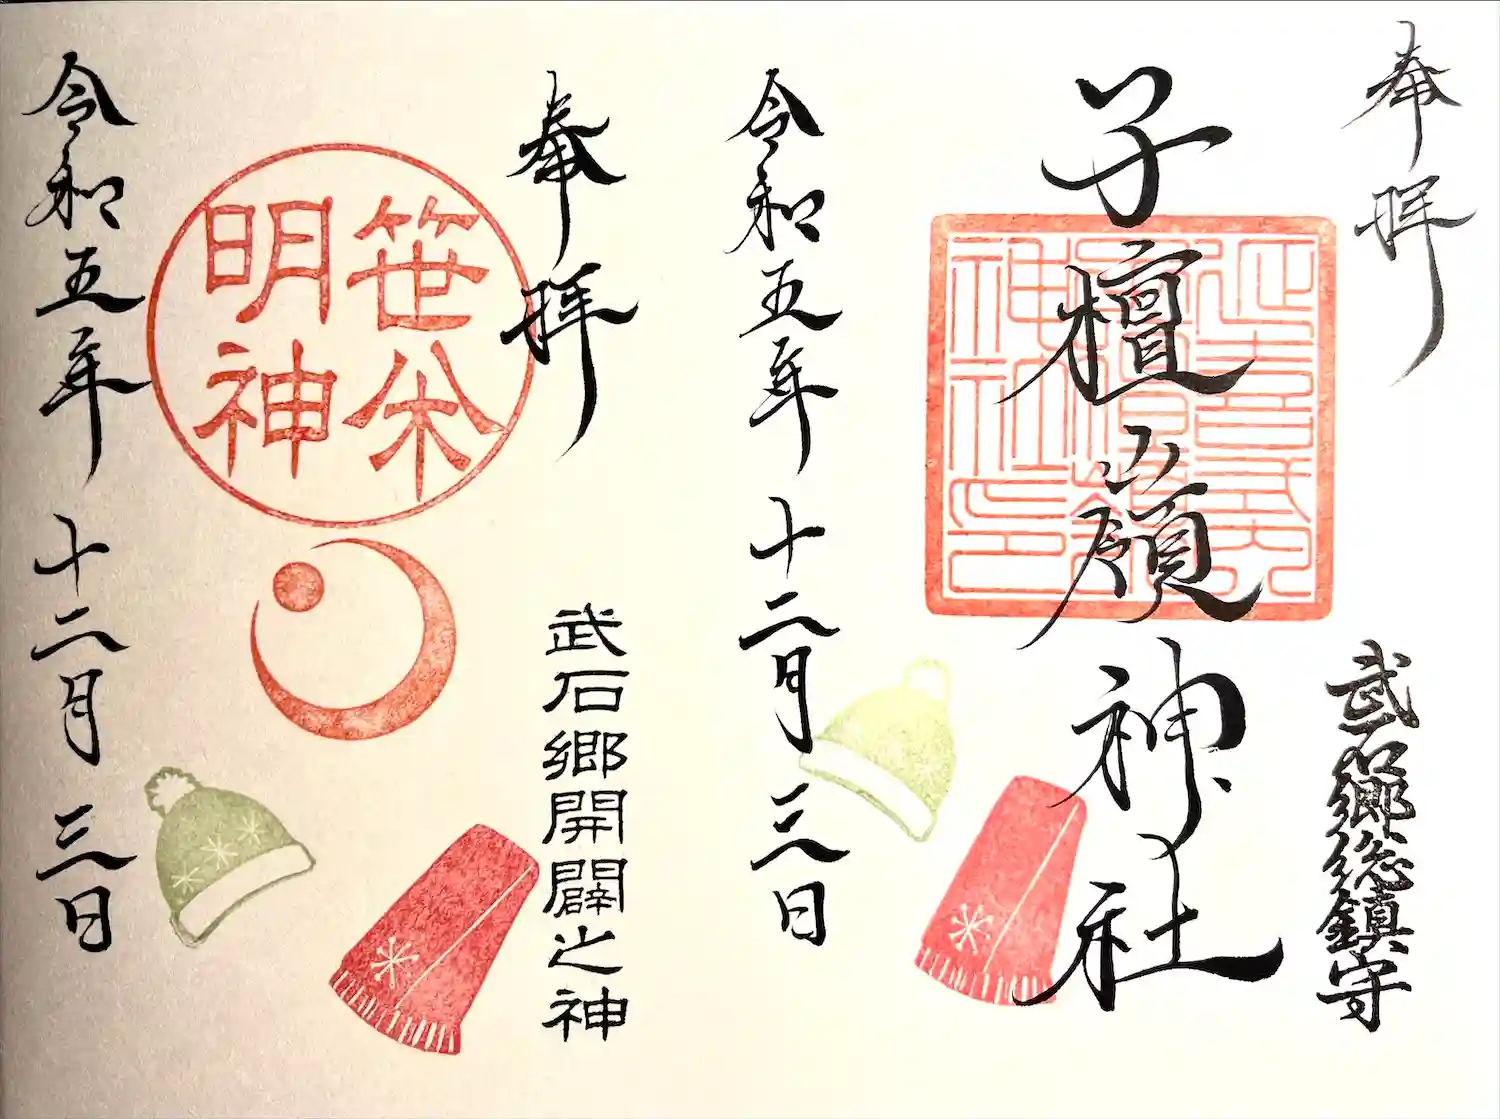 奉拝
武石郷総鎮守
子檀嶺神社
延喜式内
神社之印
令和五年十二月三日
奉拝
武石郷開闢之神
笹
明神
令和五年十二月三日